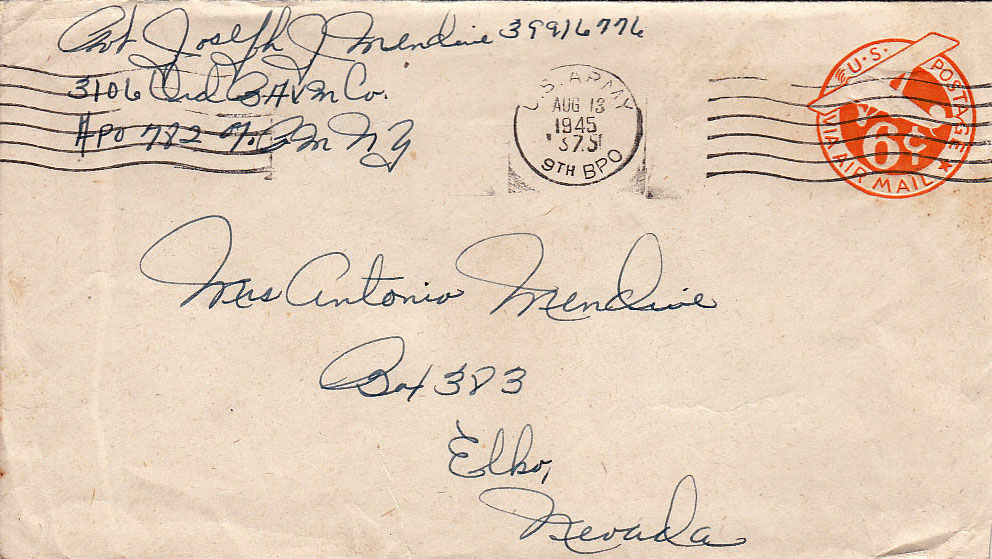 Pvt Joseph J Mendive 39916776
3106 Ord BAVM Co.
APO 782 % PM NY
U.S. ARMY
AUG 13
1945
9TH BPO
U.S. POSTAGE
6¢
VIA AIR MAIL
Mrs Antonio Mendive
Box 383
Elko,
Nevada